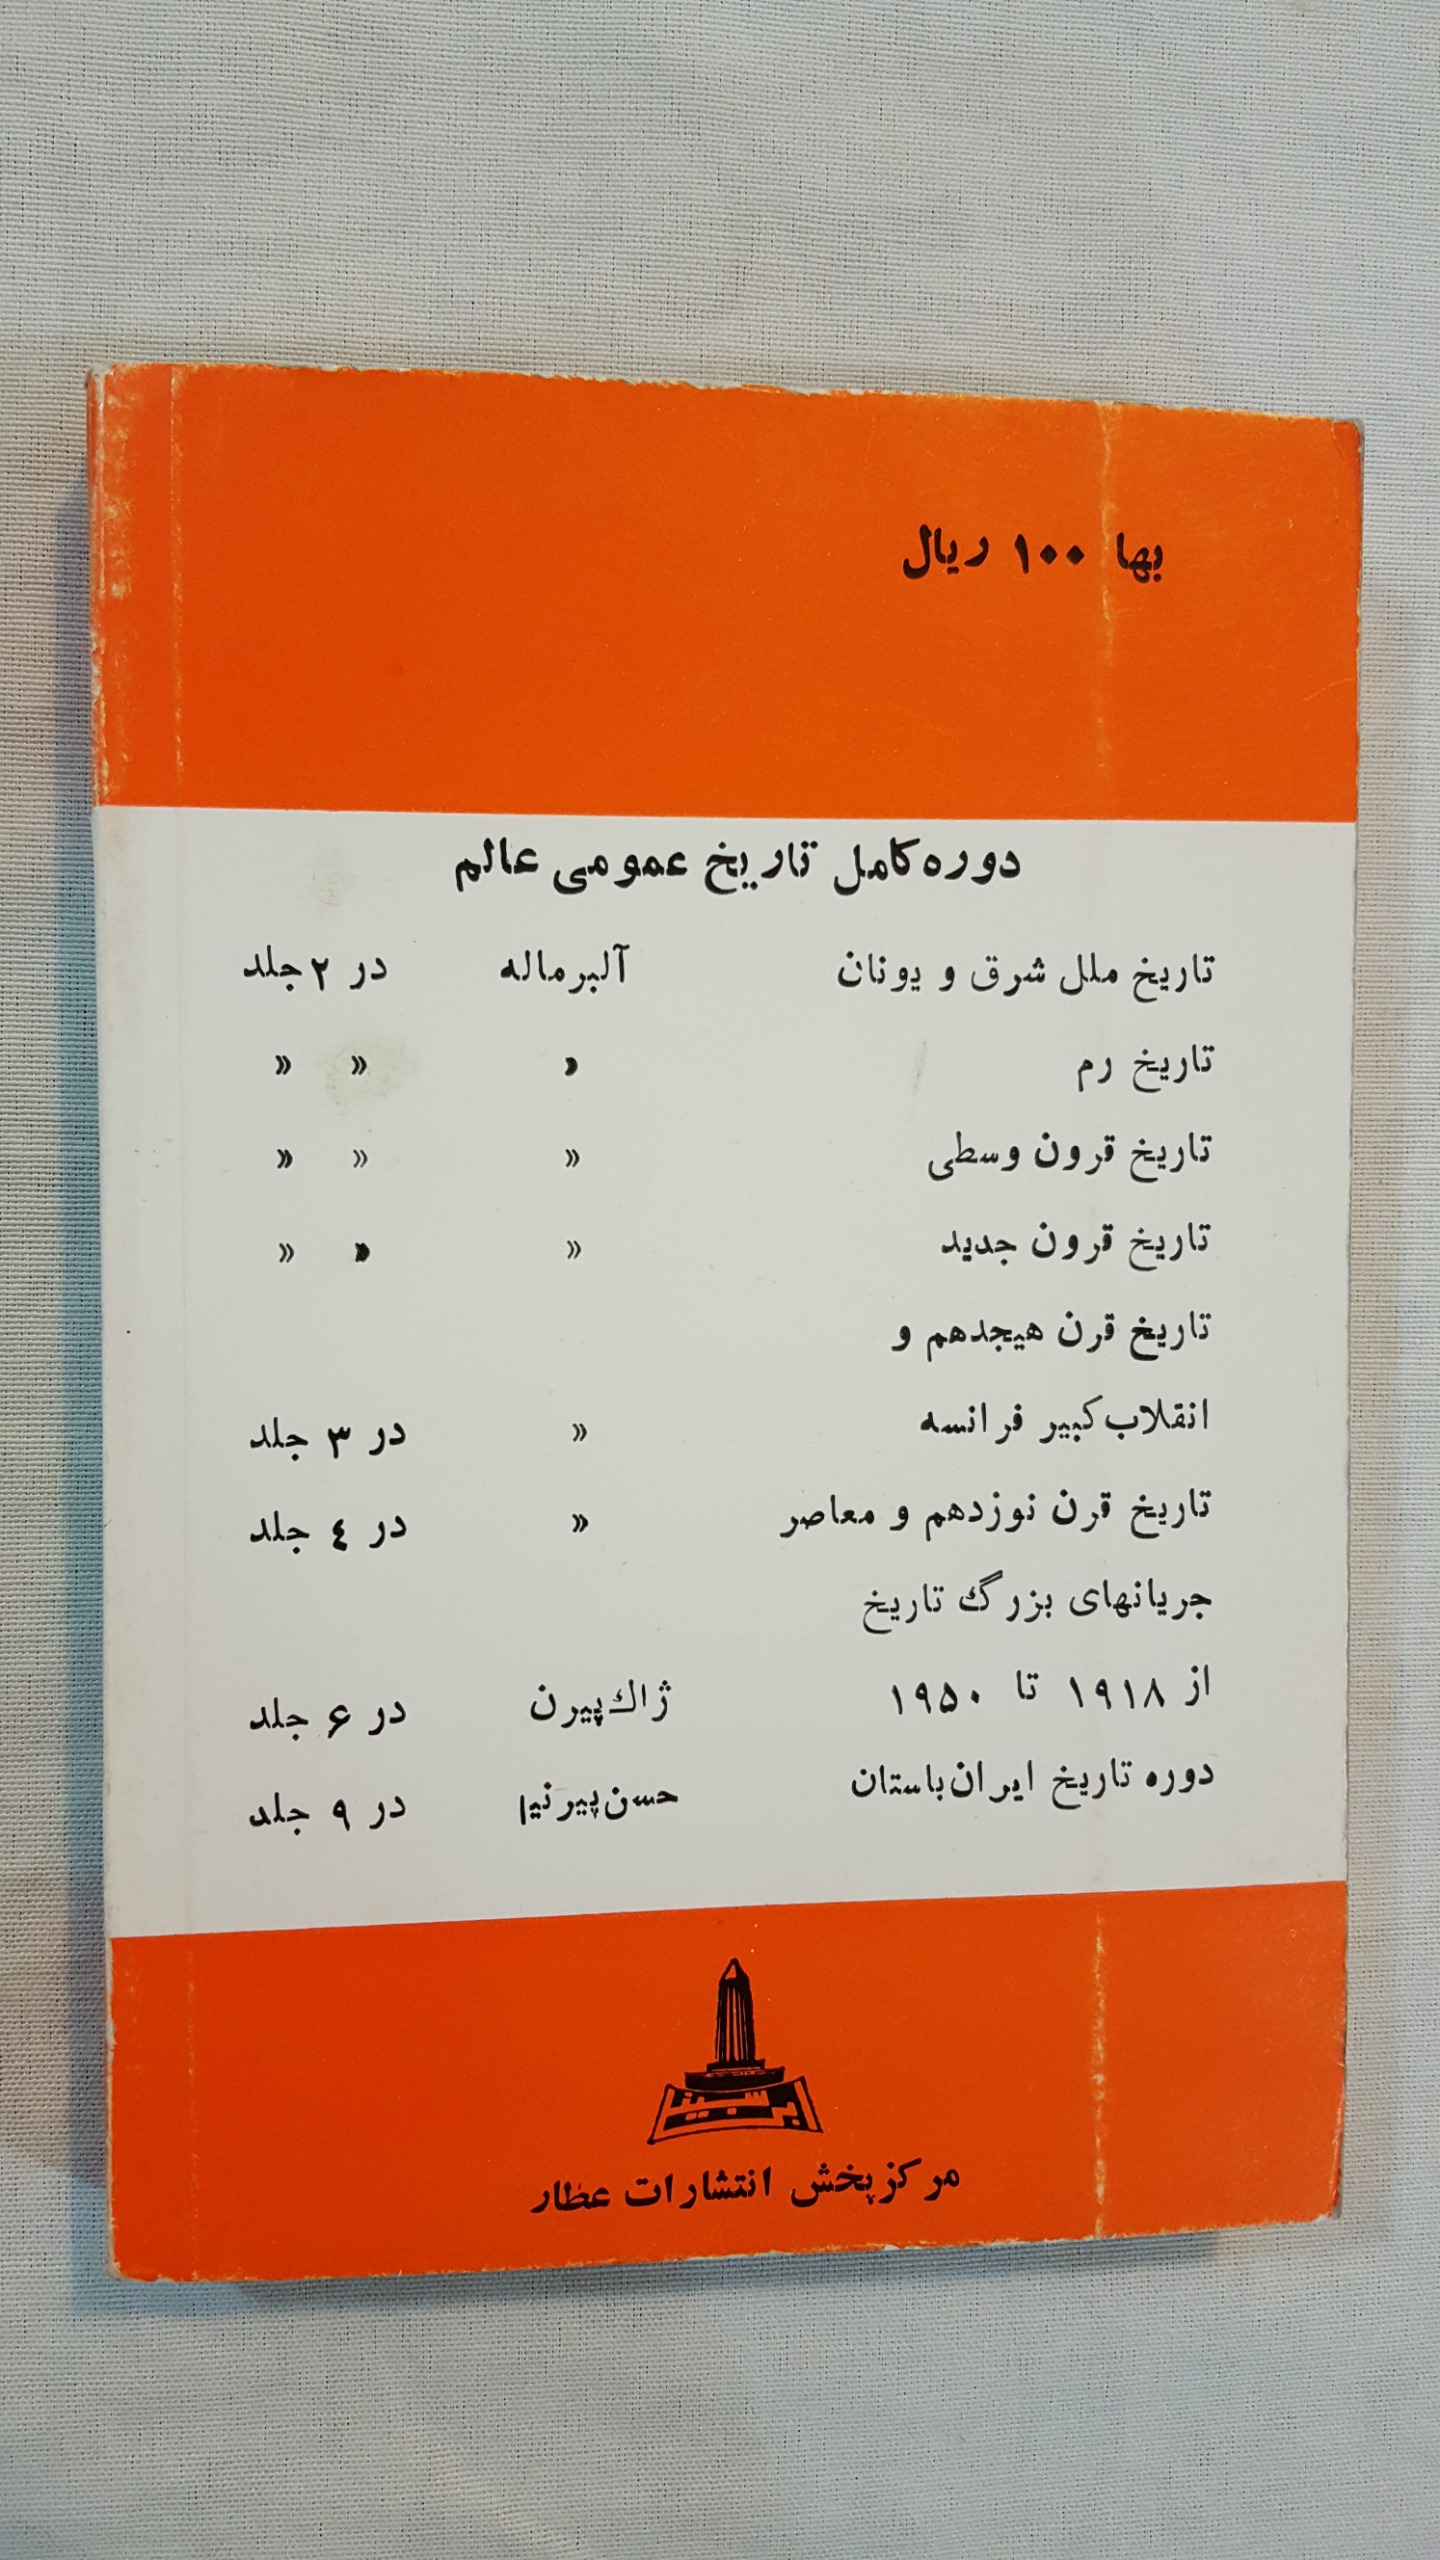 بها ۱۰۰ ریال
دوره کامل تاریخ عمومی عالم
تاریخ ملل شرق و یونان آلبر ماله در ۲ جلد
تاریخ رم » » »
تاریخ قرون وسطی » » »
تاریخ قرون جدید » » »
تاریخ قرن هیجدهم و
انقلاب کبیر فرانسه » در ۳ جلد
تاریخ قرن نوزدهم و معاصر » در ٤ جلد
جریانهای بزرگ تاریخ
از ۱۹۱۸ تا ۱۹۵۰ ژاك پیرن در ۶ جلد
دوره تاریخ ایران باستان حسن پیرنیا در ۹ جلد
ابن سینا
مرکز پخش انتشارات عطار